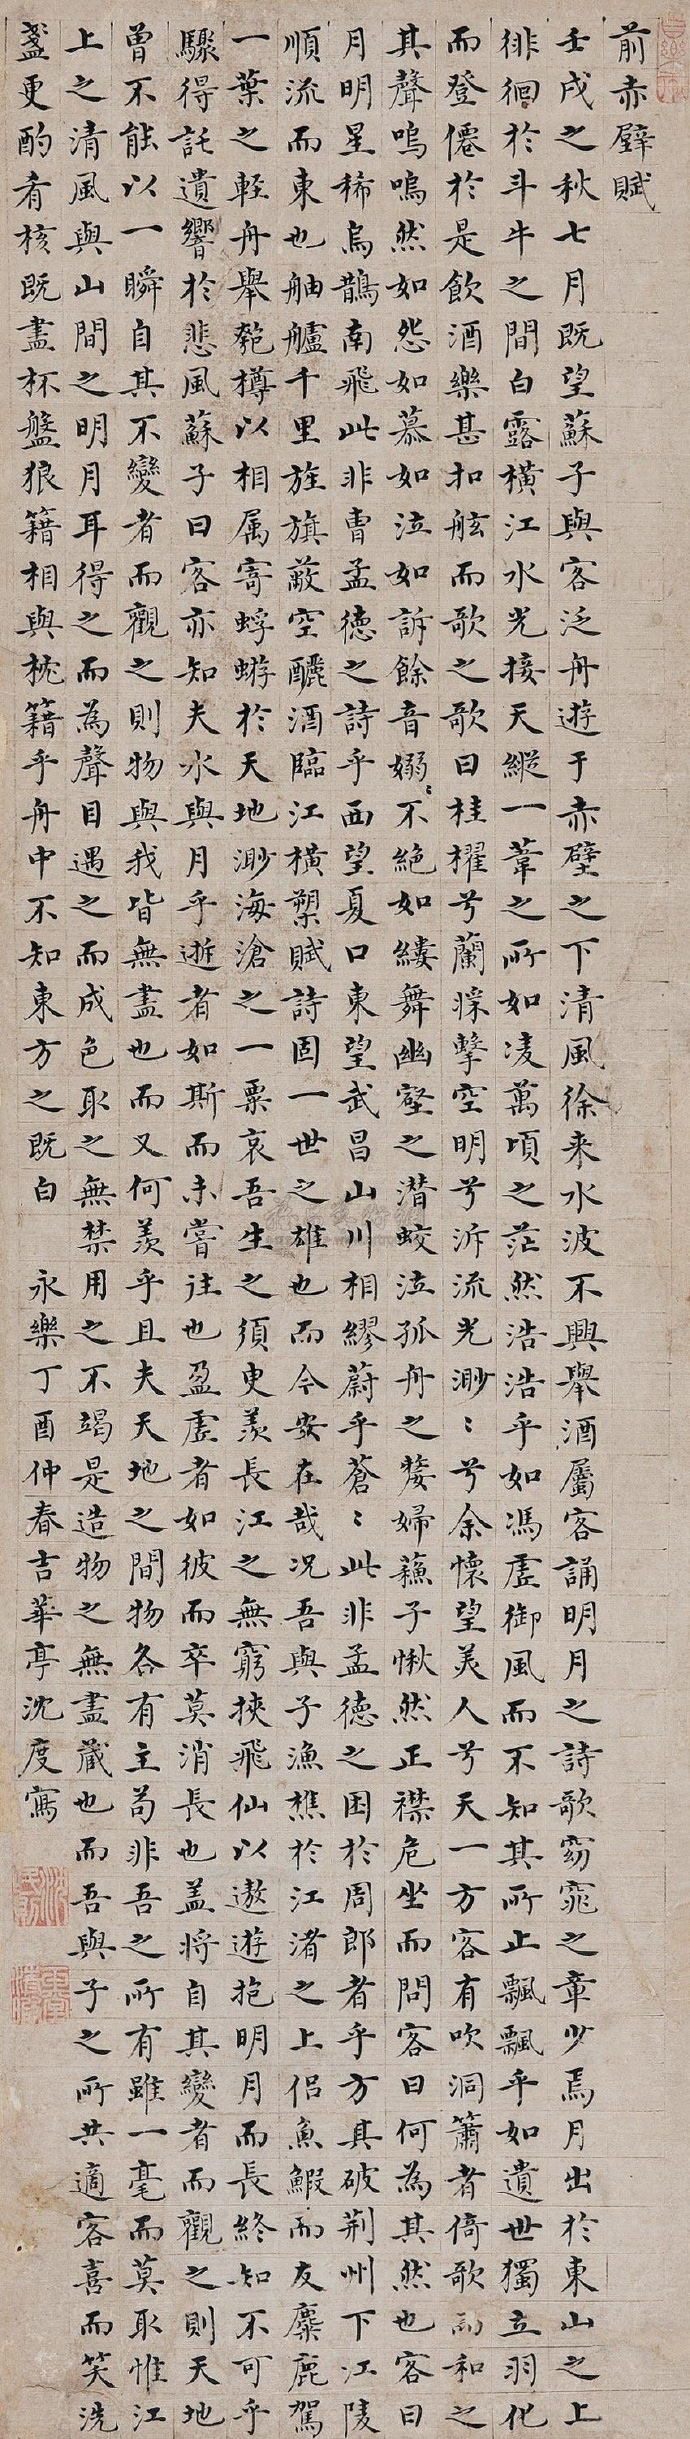 前赤壁賦
壬戌之秋七月既望蘇子與客泛舟遊于赤壁之下清風徐来水波不興舉酒屬客誦明月之詩歌窈窕之章少焉月出於東山之上
徘徊於斗牛之間白露橫江水光接天縱一葦之所如凌萬頃之茫然浩浩乎如馮虛御風而不知其所止飄飄乎如遺世獨立羽化
而登僊於是飲酒樂甚扣舷而歌之歌曰桂櫂兮蘭槳擊空明兮泝流光渺〻兮余懷望美人兮天一方客有吹洞簫者倚歌而和之
其聲嗚嗚然如怨如慕如泣如訴餘音嫋〻不絶如縷舞幽壑之潛蛟泣孤舟之嫠婦蘓子愀然正襟危坐而問客曰何為其然也客曰
月明星稀烏鵲南飛此非曹孟德之詩乎西望夏口東望武昌山川相繆蔚乎蒼〻此非孟德之困於周郎者乎方其破荆州下江陵
順流而東也舳艫千里旌旗蔽空釃酒臨江橫槊賦詩固一世之雄也而今安在哉况吾與子漁樵於江渚之上侶魚鰕而友麋鹿駕
一葉之輕舟舉匏樽以相属寄蜉蝣於天地渺海滄之一粟哀吾生之須臾羨長江之無窮挾飛仙以遨遊抱明月而長終知不可乎
驟得託遺響於悲風蘇子曰客亦知夫水與月乎逝者如斯而未嘗往也盈虛者如彼而卒莫消長也盖將自其變者而觀之則天地
曾不能以一瞬自其不變者而觀之則物與我皆無盡也而又何羨乎且夫天地之間物各有主苟非吾之所有雖一毫而莫取惟江
上之清風與山間之明月耳得之而為聲目遇之而成色取之無禁用之不竭是造物之無盡藏也而吾與子之所共適客喜而笑洗
盞更酌肴核既盡杯盤狼籍相與枕籍乎舟中不知東方之既白　永樂丁酉仲春吉華亭沈度寫